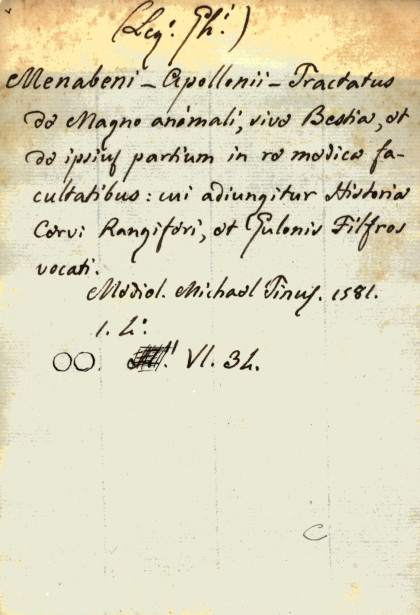 (Leg: Ph:)
Menabeni - Apollonii - Tractatus
de Magno anómali, sive Bestia, et
de ipsius partium in re medica fa-
cultatibus: cui adiungitur Historia
Cervi Rangiferi, et Gulonis Filfros
vocati.
Mediol. Michael Tinus. 1581.
1. L:
OO. VI. 34.
C